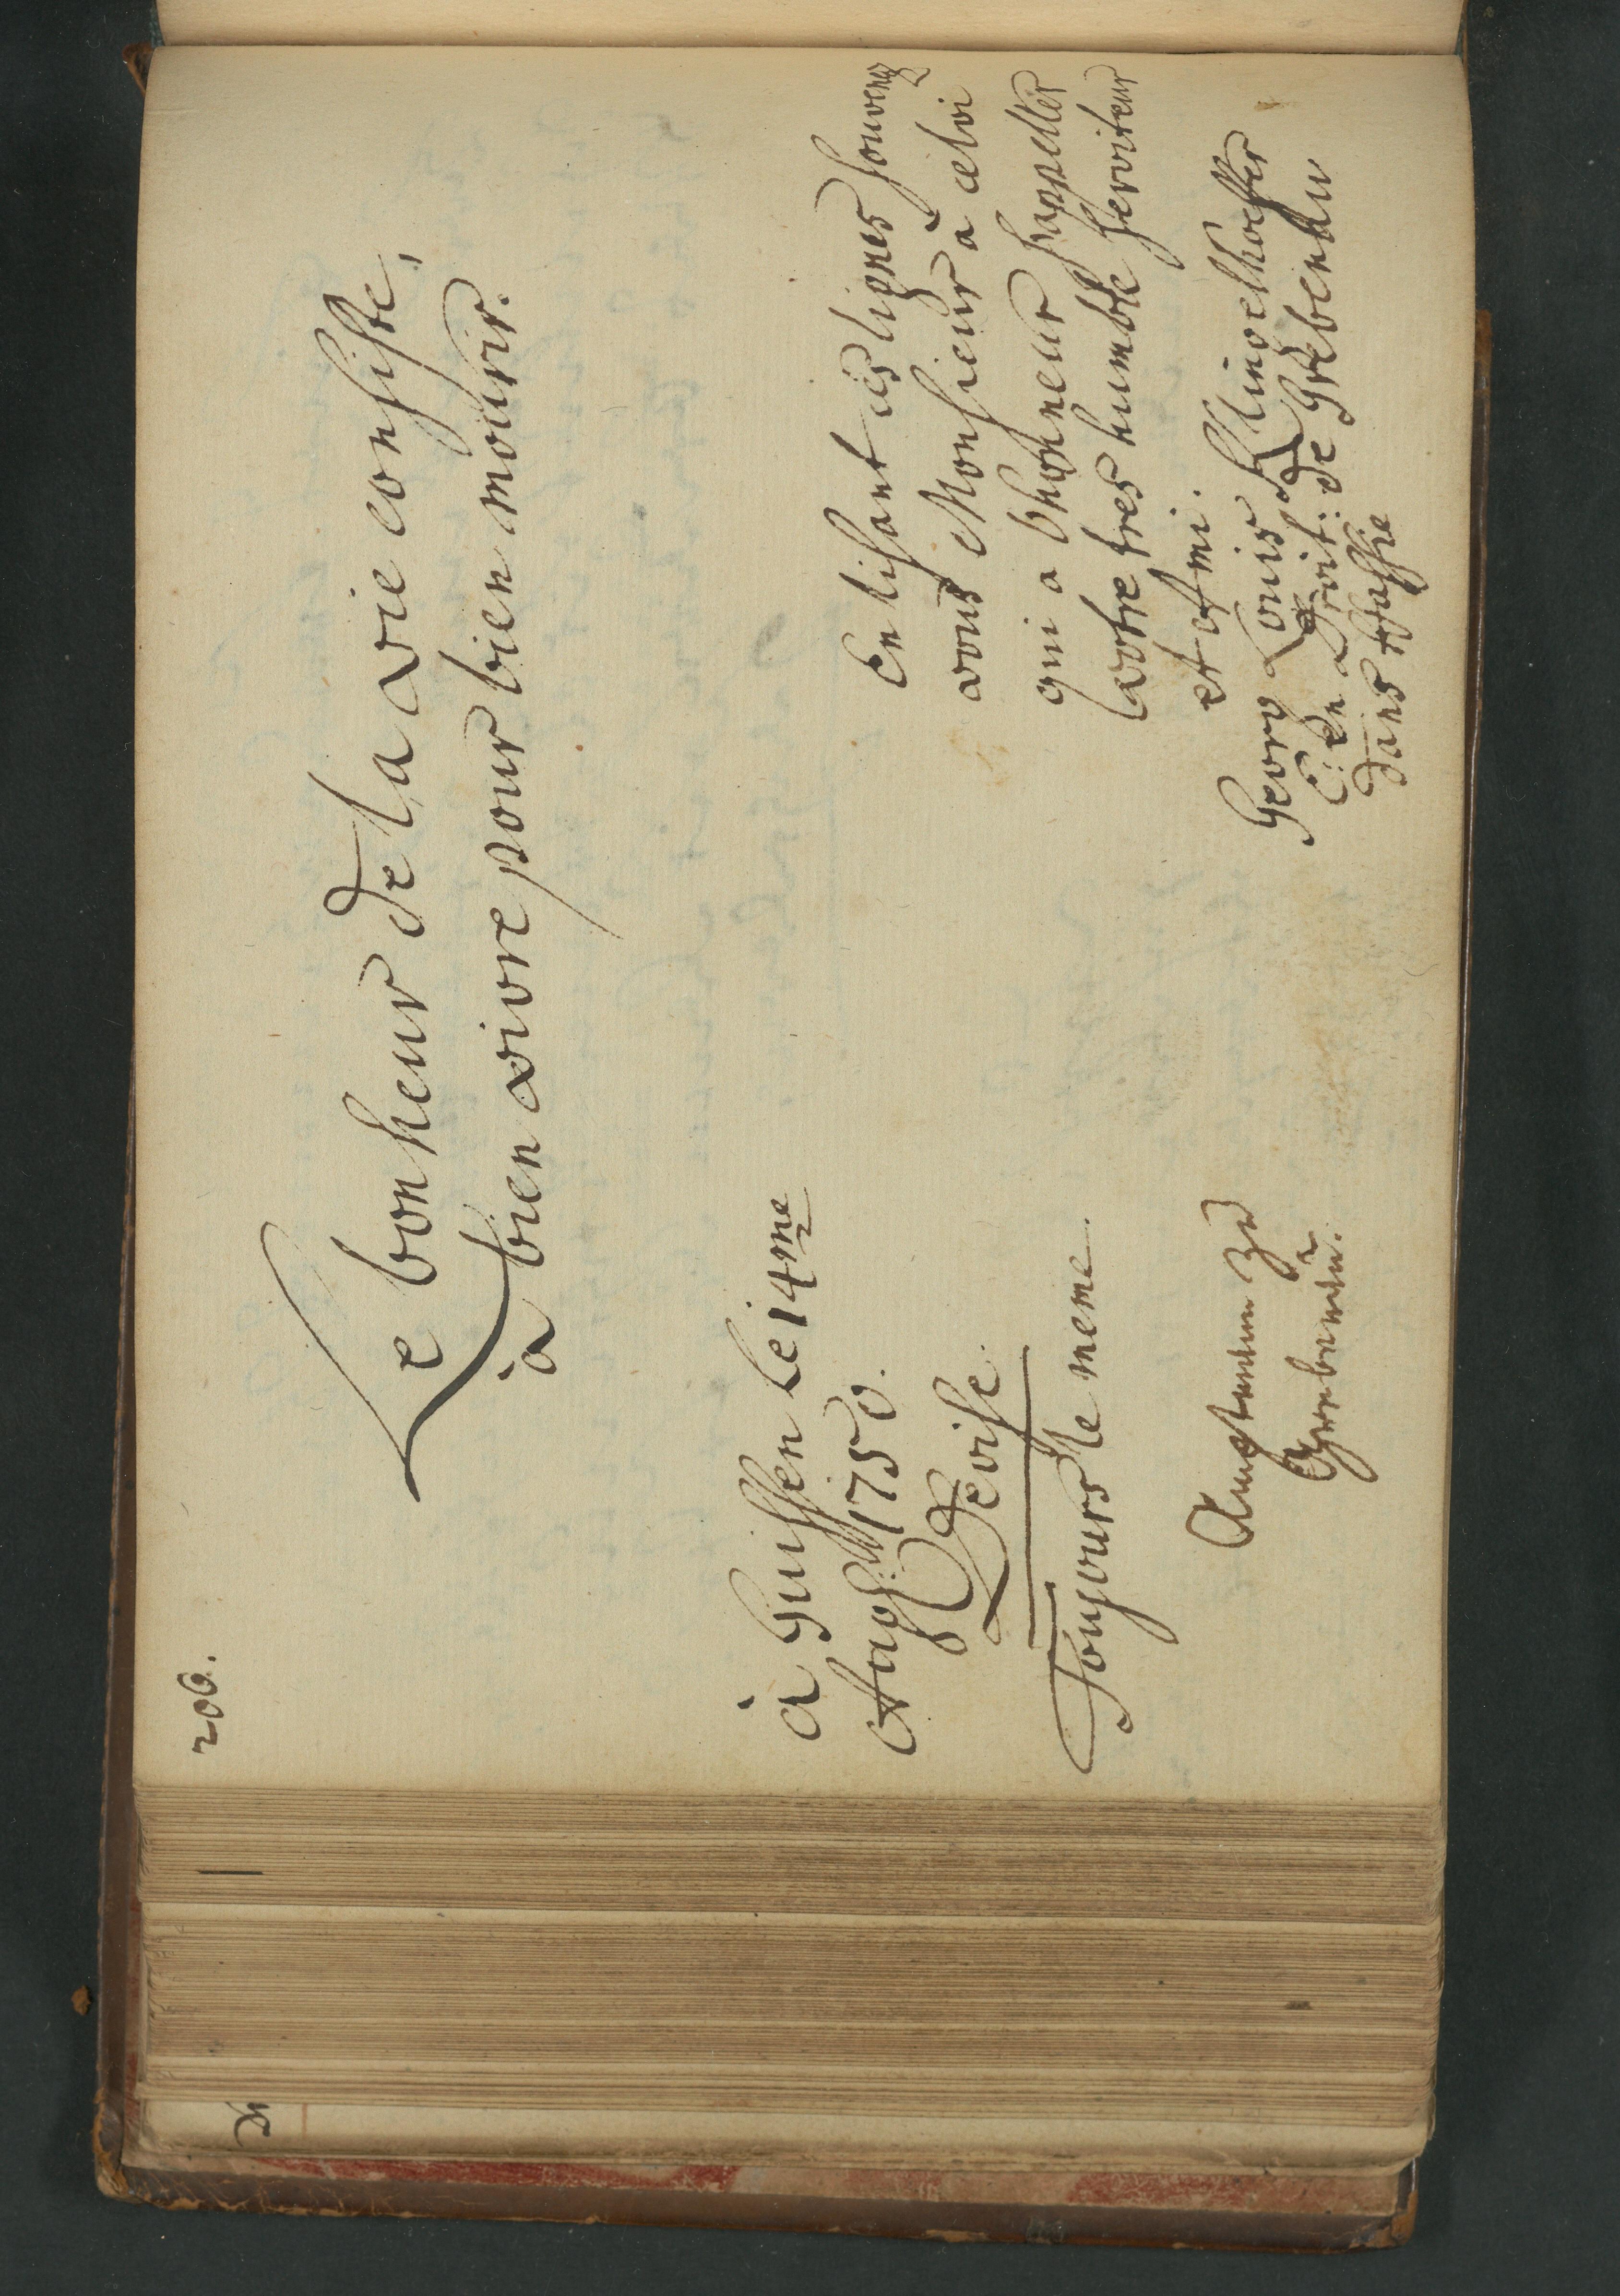 206.
Le bonheur de la vie consiste,
à bien vivre pour bien mourir.
à Guissen le 14me
Aug: 1750.
Devise.
Toujours le meme.
En lisant ces lignes souvenez
vous Monsieur à celvi
qui a lhonneur sappeller
votre tres humble serviteur
et Ami.
Georg Louis Klingelhoeffer
E: en Droit: de Grebenau
dans Hassie
Amtmann zu
Grebenau.